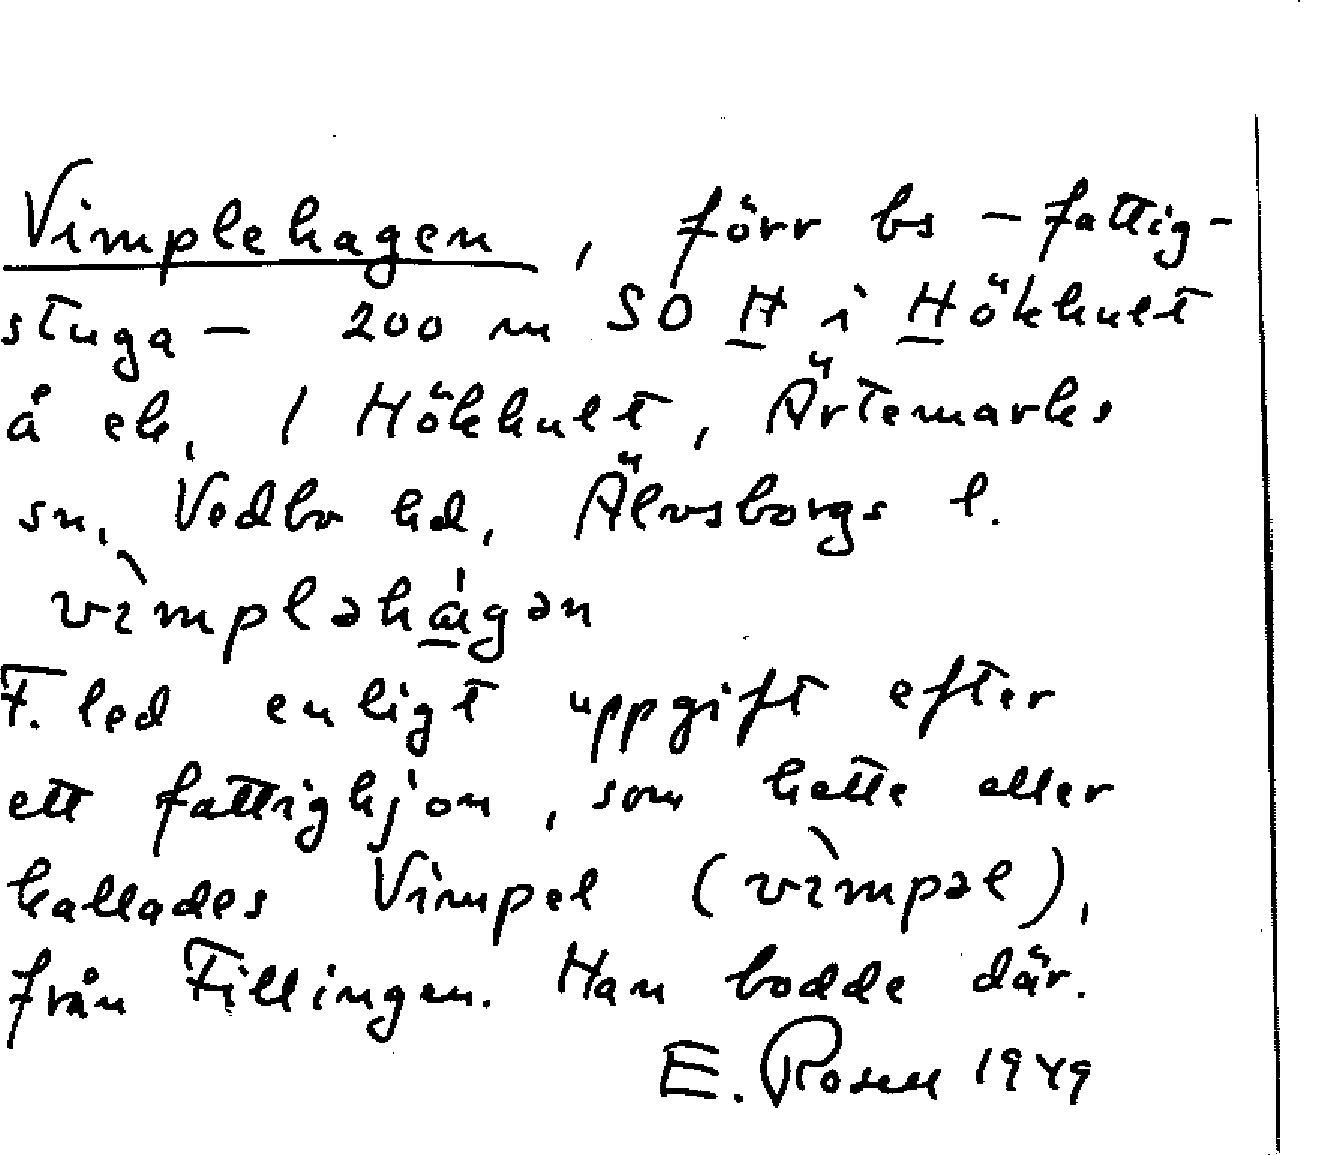 Vimplehagen, förr bs - fattig-
stuga - 200 m SO H i Hökhult
å ek. 1 Hökhult, Ärtemarks
sn, Vedbo hd, Älvsborgs l.
vìmpləhágən
F. led enligt uppgift efter
ett fattighjon, som hette eller
kallades Vimpel (vìmpəl),
från Fillingen. Han bodde där.
E. Rosell 1949